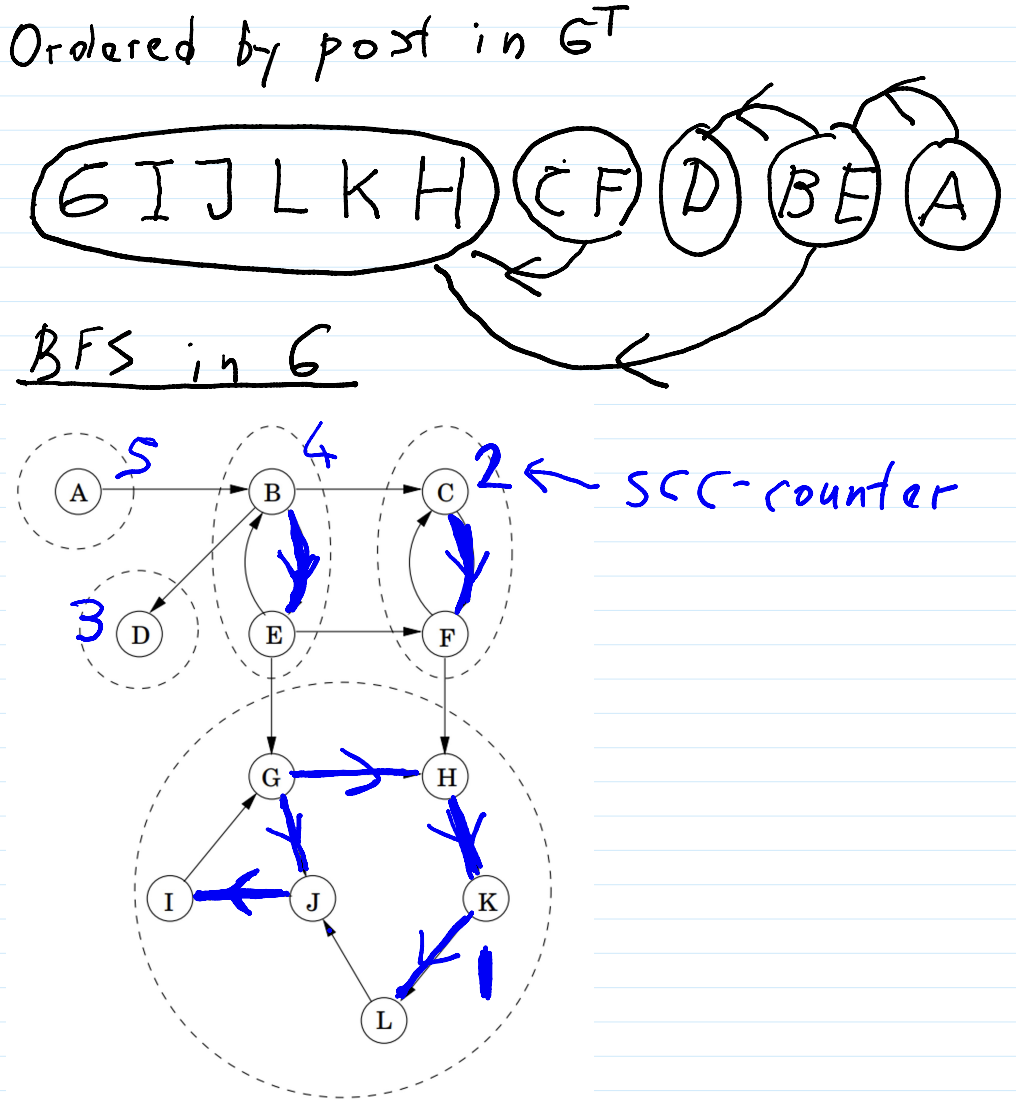 Ordered by post in G^T
G I J L K H C F D B E A
BFS in G
5 4 2 ← SCC-counter
A B C
3
D E F
G H
I J K
1
L